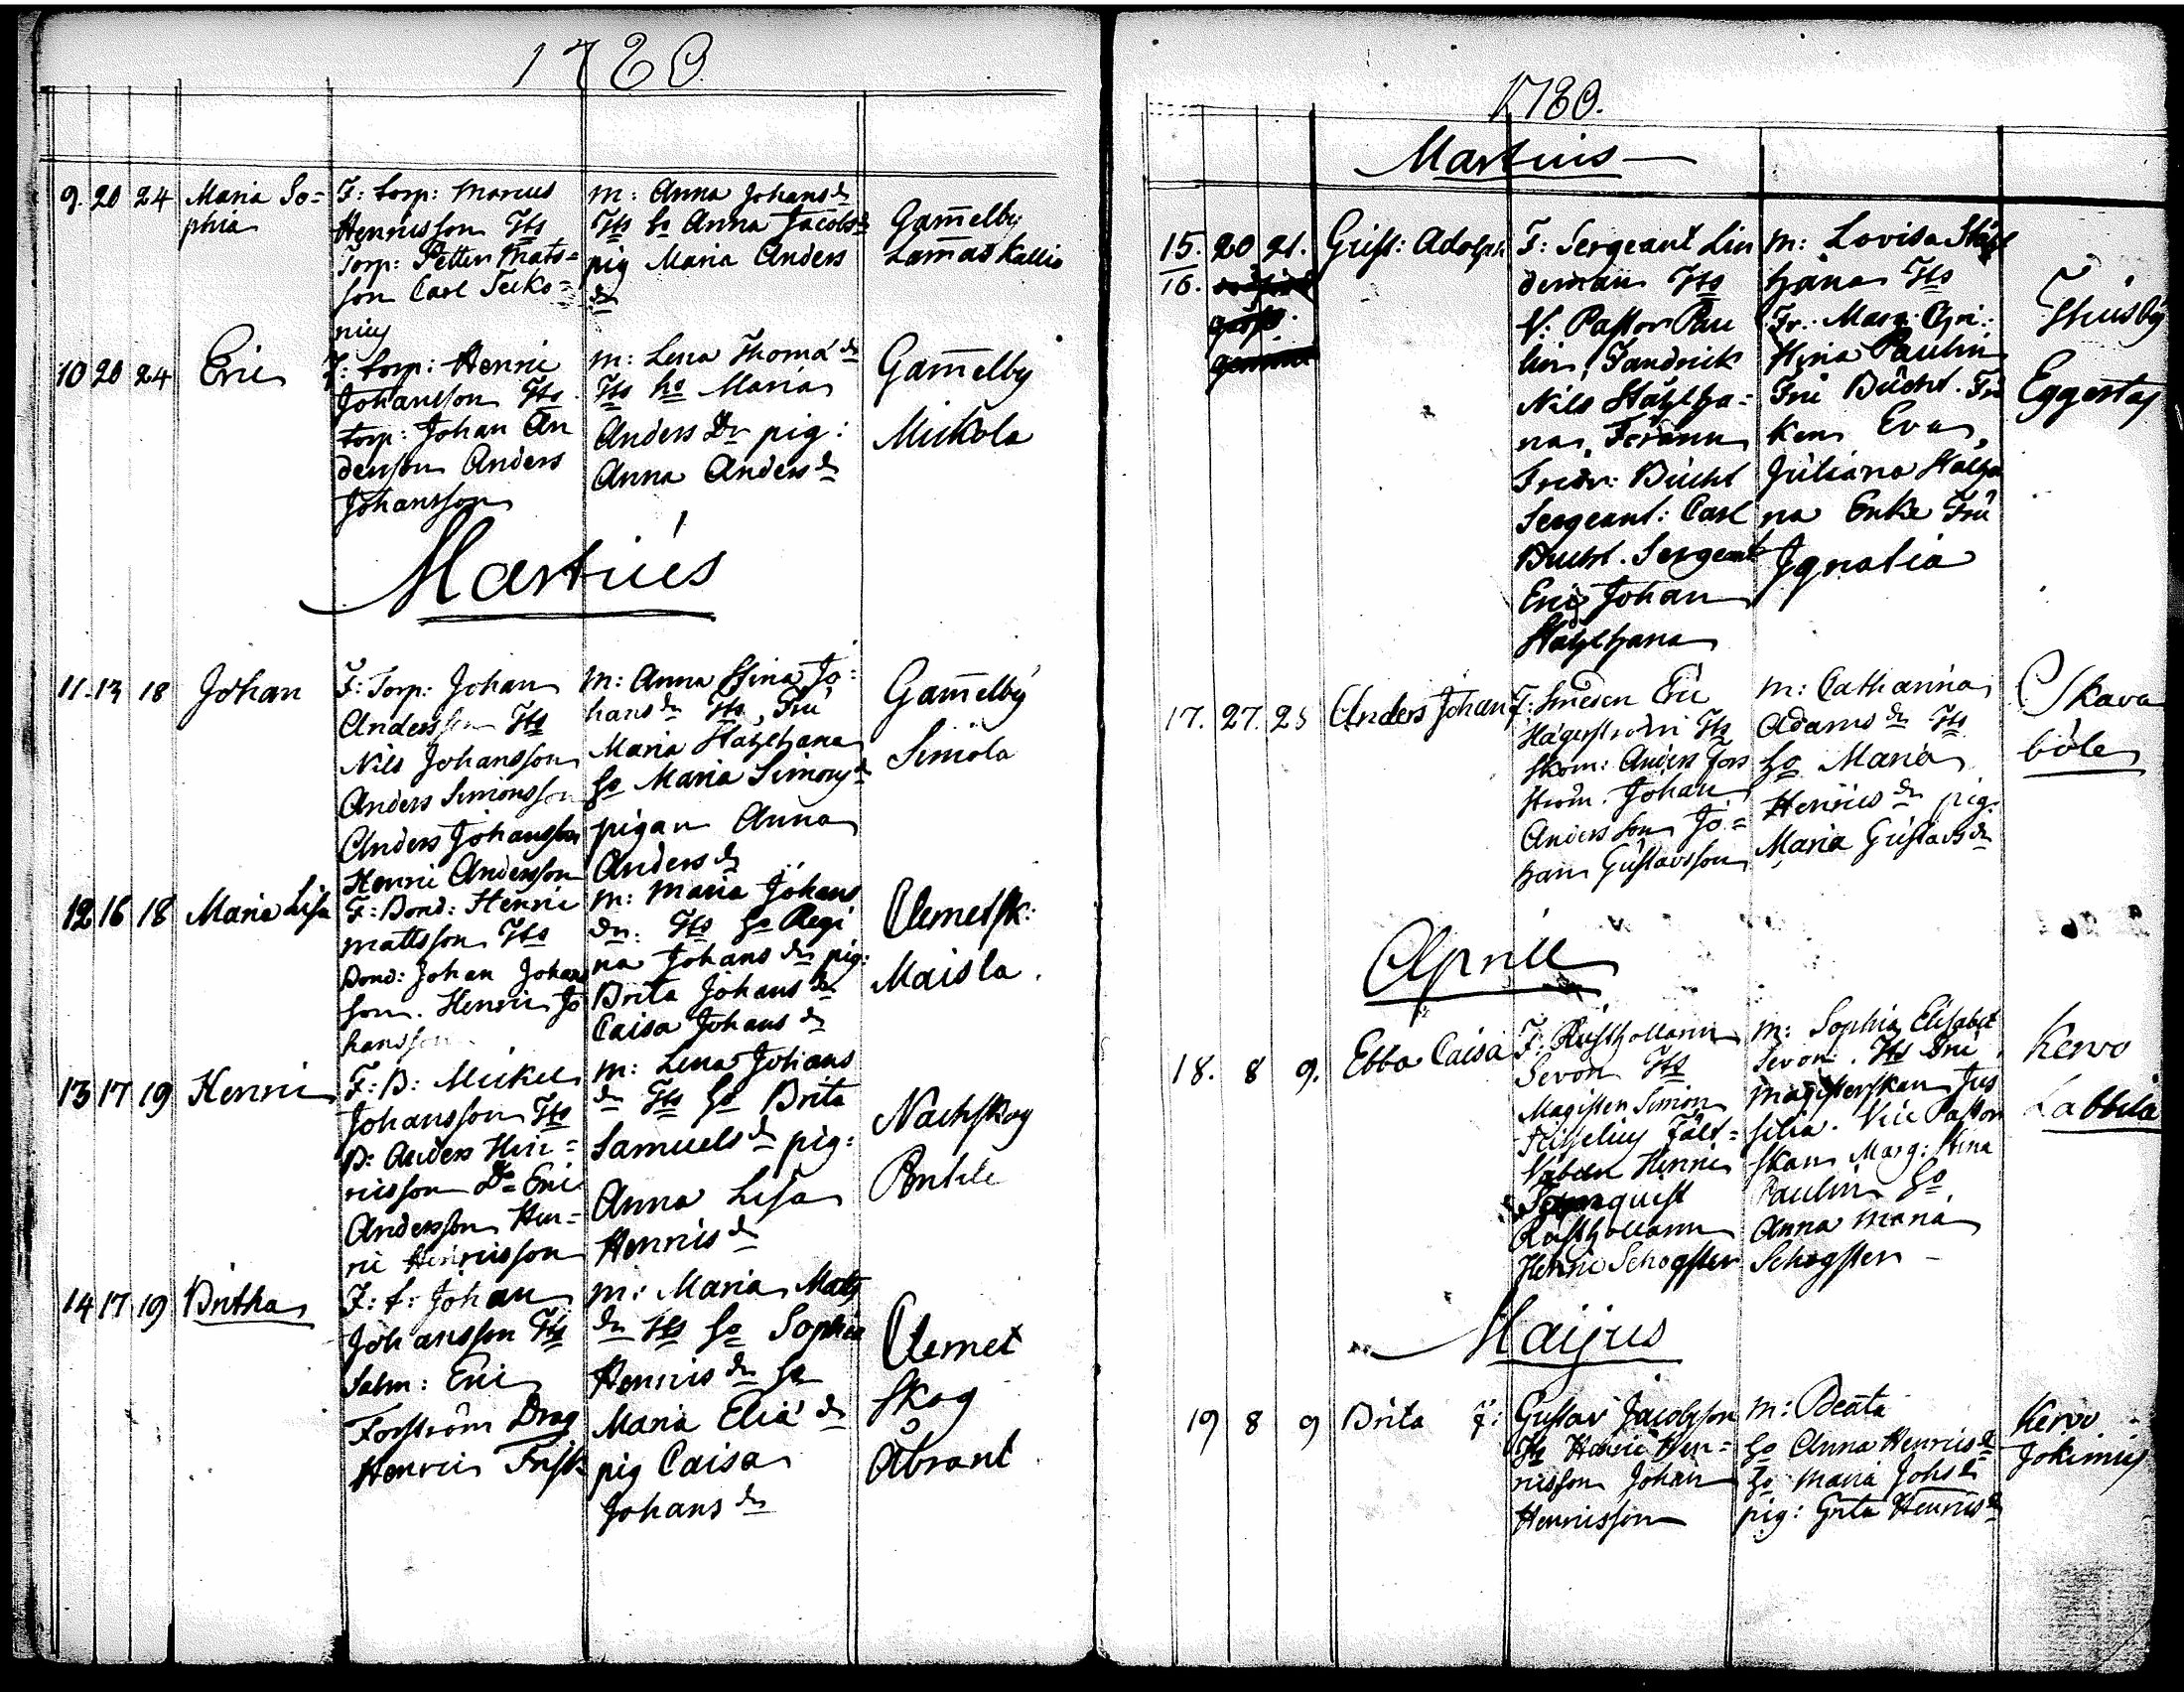 1780.
9. 20 24 Maria So=
phia
F: torp: Marcus
Henricsson Tts
Torp: Petter Mats=
son Carl
m: Anna Johans dr
Tts ho Anna Jacobs dr
pig Maria Anders
dr
Gam̄elby
Lam̄as Kallio
10 20 24 Eric
F: torp: Henric
Johansson Tts
torp: Johan An
dersson Anders
Johansson
m: Lena Thomæ dr
Tts ho Maria
Anders Dr pig:
Anna Anders dr
Gam̄elby
Mickola
Martius
11. 13 18 Johan
F: Torp: Johan
Andersson Tts
Nils Johansson
Anders Simonsson
Anders Johansson
Henric Andersson
m: Anna Stina Jo:
hans dr Tts, Fru
Maria Stahlhana
ho Maria Simons dr
pigan Anna
Anders dr
Gam̄elby
Simola
12 16 18 Maria Lisa
F: Bond: Henric
Mattsson Tts
Bond: Johan Johans
son. Henric Jo
hansson
m: Maria Johans
dr. Tts ho Regi
na Johans dr pig:
Brita Johans dr
Caisa Johans dr
Clemetsk:
Maisla.
13 17 19 Henric
F: B: Mickel
Johansson Tts
B: Anders Hen=
ricsson Do Eric
Andersson Hen=
ric Henricsson
m: Lena Johans
dr Tts ho Brita
Samuels dr pig:
Anna Lisa
Henrics dr
Nachskog
14 17 19 Britha
F: t: Johan
Johansson Tts
Salm: Eric
Forström Drag
Henric Frisk
m: Maria Mats
dr Tts ho Sophia
Henrics dr ho
Maria Eliæ dr
pig Caisa
Johans dr
Clemet
skog
Åbrant
1780.
Martius
15. 20 21. Gust: Adolph
16.
F: Sergeant Lin
deman Tts
V: Pastor Pau
lin, Fandrick
Nils Stahlha=
na,
Fredr: Bucht
Sergeant: Carl
Bucht. Sergeant
Eric Johan
Stahlhana
m: Lovisa Stahl
hana Tts
Fr. Marg: Chri:
stina Paulin
Fru Bucht. Frö
ken Eva
Juliana Stalha
na Enke Fru
Ignatia
Thusby
Eggertas
17. 27. 28 Anders Johan
F: Smeden Eric
Hagerström Tts
Skom: Anders Fors
ström. Johan
Andersson Jo=
han Gustavsson
m: Catharina
Adams dr Tts
ho Maria
Henrics dr pig.
Maria Gustavs dr
Skava
böle
Aprill
18. 8 9. Ebba Caisa
F: Rusthollaren
Sevon Tts
Magister Simon
Fält=
väbeln Henric
Rusthollaren
Henric Schogster
m: Sophia Elisabet
Sevon. Tts Fru
magisterskan Jus
silia. Vice Pastor
skan Marg: Stina
Paulin ho
Anna Maria
Schogster
Kervo
Labbila
Maijus
19 8 9 Brita
F: Gustav Jacobsson
Tts Henric Hen=
ricsson Johan
Henricsson
m: Beata
ho Anna Henrics dr
ho Maria Johs dr
pig: Greta Henrics dr
Kervo
Jokimies